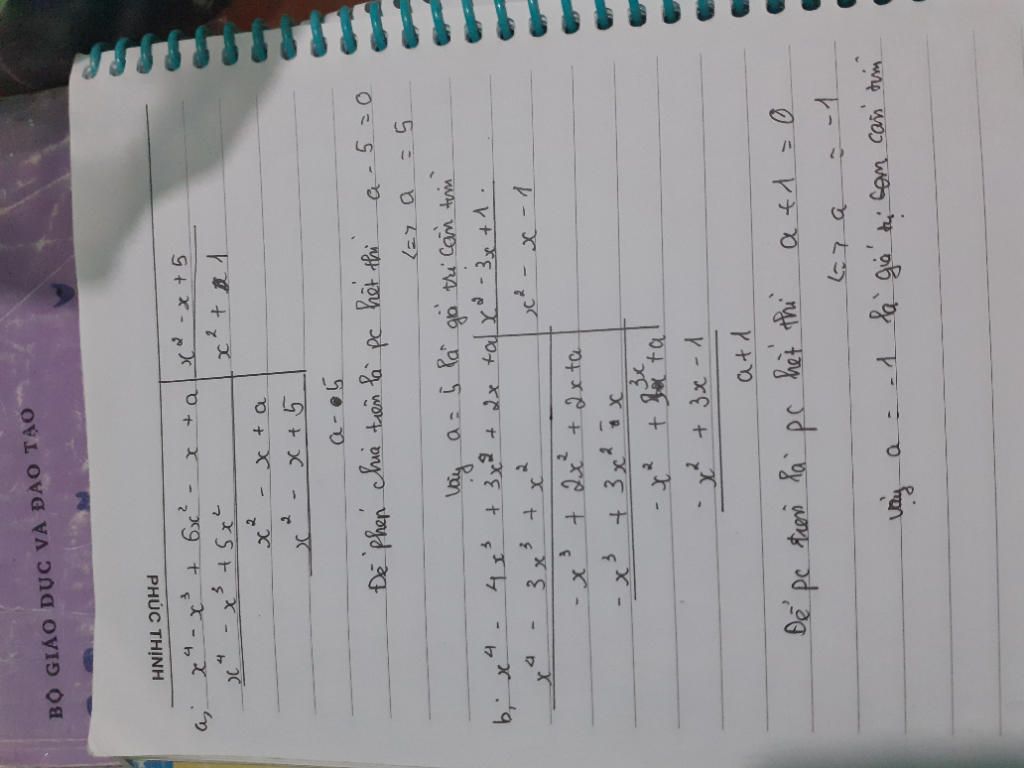 BỘ GIÁO DỤC VÀ ĐÀO TẠO
PHÚC THỊNH
a, x⁴ - x³ + 6x² - x + a | x² - x + 5
x⁴ - x³ + 5x² | x² + 1
x² - x + a
x² - x + 5
a - 5
Để phép chia trên là pc hết thì a - 5 = 0
<=> a = 5
Vậy a = 5 là giá trị cần tìm
b, x⁴ - 4x³ + 3x² + 2x + a | x² - 3x + 1.
x⁴ - 3x³ + x² | x² - x - 1
- x³ + 2x² + 2x + a
- x³ + 3x² - x
- x² + 3x + a
- x² + 3x - 1
a + 1
Để pc trên là pc hết thì a + 1 = 0
<=> a = -1
Vậy a = -1 là giá trị cần tìm